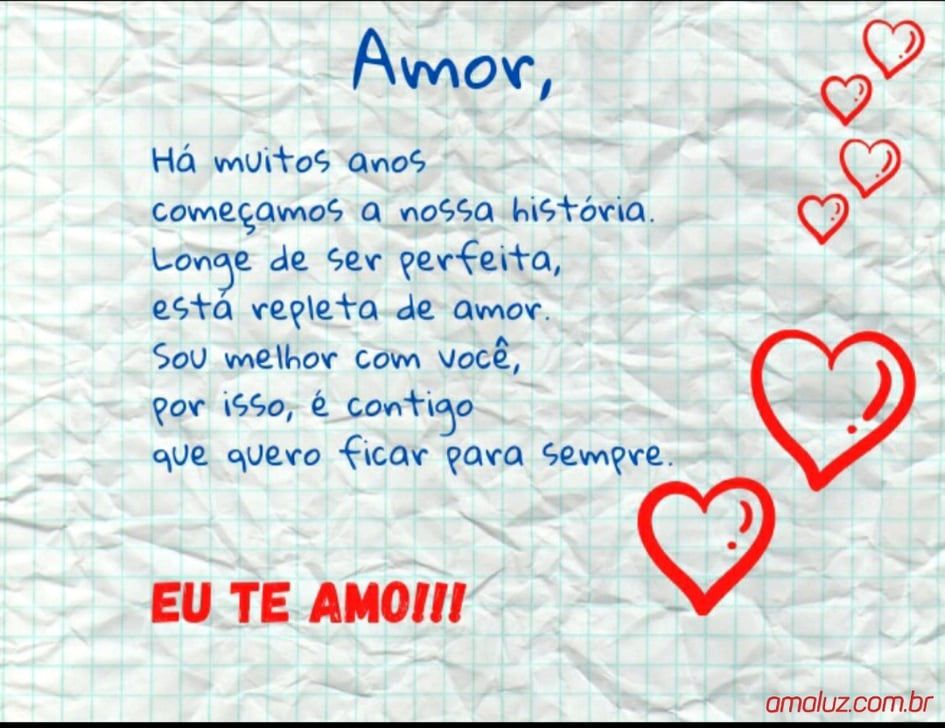 Amor,
Há muitos anos
começamos a nossa história.
Longe de ser perfeita,
está repleta de amor.
Sou melhor com você,
por isso, é contigo
que quero ficar para sempre.
EU TE AMO!!!
amaluz.com.br